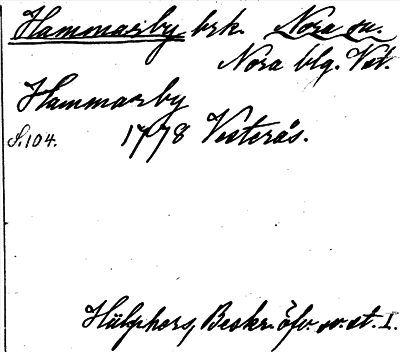 Hammarby brk. Nora sn.
Nora blg. Vstm.
Hammarby
S. 104. 1778 Vesterås.
Hülphers, Beskr. öfv. sv. st. I.